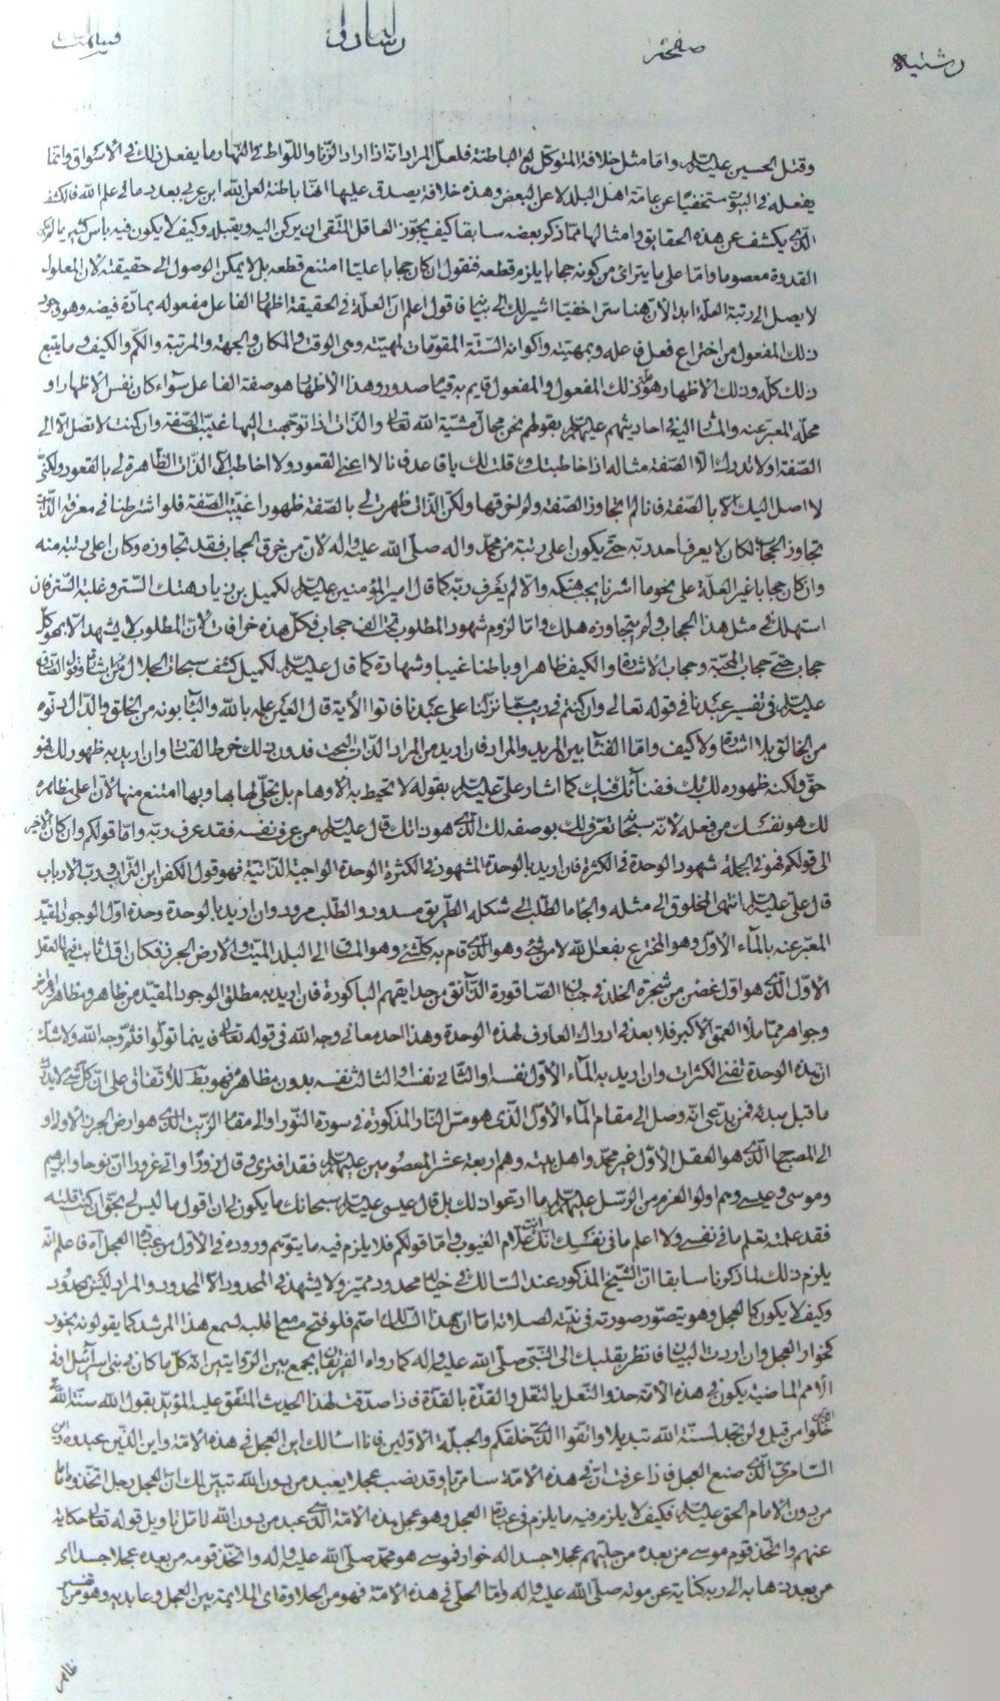 وقتل الحسين عليه السلام واما مثل خلافة المتوكل مع الباطنة فلعل المراد انه اذا اراد الزنا واللواط في النهار ما يفعل ذلك في الاسواق وانما
يفعله في البيوت مستخفيا عن عامة اهل البلد لا عن البعض وهذه خلافة يصدق عليها انها باطنة لعن الله ابن عربي بعدد ما في علم الله فالكشف
الذي يكشف عن هذه الحقايق وامثالها مما ذكر بعضه سابقا كيف يجوز العاقل المتقي ان يركن اليه ويقبله وكيف لا يكون فيه باس كثير ما لم يكن
القدوة معصوما واما على ما يترائ من كونه حجابا يلزم قطعه فنقول ان كان حجابا عليا امتنع قطعه بل لا يمكن الوصول الى حقيقته لان المعلول
لا يصل الى رتبة العلة ابدا الا ان هنا سرا خفيا اشير لك الى بيانه فاقول اعلم ان العلة في الحقيقة اظهار الفاعل مفعوله بمادة فيضه وهو وجود
ذلك المفعول من اختراع فعل فاعله وبمهيته واكوانه الستة المقومات لمهيته وهي الوقت والمكان والجهة والمرتبة والكم والكيف وما يتبع
ذلك كله وذلك الاظهار هو ذلك المفعول والمفعول قايم به قيام صدور وهذا الاظهار هو صفة الفاعل سواء كان نفس الاظهار او
محله المعبر عنه والمشار اليه في احاديثهم عليهم السلام بقولهم نحن محال مشية الله تعالى والذات اذا توجهت اليها غيبت الصفة وان كنت لا تصل الا الى
الصفة ولا تدرك الا الصفة مثاله اذا خاطبتك وقلت لك يا قاعد فانا لا اعني القعود ولا اخاطب الا الذات الظاهرة لي بالقعود ولكني
لا اصل اليك الا بالصفة فانا لم اتجاوز الصفة ولم اخرقها ولكن الذات ظهرت لي بالصفة ظهورا غيبت الصفة فلو اشترطنا في معرفة الذات
تجاوز الحجاب لكان لا يعرف احد ربه حتى يكون اعلى رتبة من محمد واله صلى الله عليه واله لان من خرق الحجاب فقد تجاوزه وكان اعلى رتبة منه
وان كان حجابا غير العلة على نحو ما اشرنا يجب هتكه والا لم يعرف ربه كما قال امير المؤمنين عليه السلام لكميل بن زياد هتك الستر وغلبة السر فان
استهلك في مثل هذا الحجاب ولم يتجاوزه هلك واما لزوم شهود المطلوب تحت الف حجاب فكل هذه خرافات لان المطلوب لا يشهد الا بمحو كل
حجاب حتى حجاب المحبة وحجاب الاشارة والكيف ظاهرا وباطنا غيبا وشهادة كما قال عليه السلام لكميل كشف سبحات الجلال من غير اشارة وقول الصادق
عليه السلام في تفسير عبدنا في قوله تعالى وان كنتم في ريب مما نزلنا على عبدنا فاتوا الاية قال العين علمه بالله والباء بونه من الخلق والدال دنوه
من الخالق بلا اشارة ولا كيف واما الفناء بين المريد والمراد فان اريد من المراد الذات البحت فدون ذلك خرط القتاد وان اريد به ظهور لك فهو
حق ولكنه ظهوره لك بك ففناؤك فيك كما اشار علي عليه السلام بقوله لا تحيط به الاوهام بل تجلى لها بها وبها امتنع منها لان اعلى مظاهره
لك هو نفسك من فعله لانه سبحانه تعرف لك بوصفه لك الذي هو ذاتك قال عليه السلام من عرف نفسه فقد عرف ربه واما قولكم وان كان الاخير
الى قولكم فهو في الجملة شهود الوحدة في الكثرة فان اريد بالوحدة المشهود في الكثرة الوحدة الواجبة الذاتية فهو قول الكفر اين التراب ورب الارباب
قال علي عليه السلام انتهى المخلوق الى مثله والجاه الطلب الى شكله الطريق مسدود والطلب مردود وان اريد بالوحدة وحدة اول الوجود المقيد
المعبر عنه بالماء الاول وهو المخترع بفعل الله لا من شئ وهو الذي قام به كل شئ وهو المساق الى البلد الميت والارض الجرز فكان اول نابت فيها العقل
الاول الذي هو اول غصن من شجرة الخلد في جنان الصاقورة الذائق من حدايقهم الباكورة فان اريد به مطلق الوجود المقيد من ظاهر ومظاهر اعراض
وجواهر مما ملأ العمق الاكبر فلا بعد في ادراك العارف لهذه الوحدة وهذا احد معاني وجه الله في قوله تعالى فاينما تولوا فثم وجه الله ولا شك
ان هذه الوحدة تفني الكثرات وان اريد به الماء الاول نفسه او الثاني نفسه او الثالث نفسه بدون مظاهرهم فهو باطل للاتفاق على ان كل شئ لا يدرك
ما قبل مبدئه فمن يدعي انه وصل الى مقام الماء الاول الذي هو مس النار المذكورة في سورة النور او الى مقام الزيت الذي هو ارض الجرز الاولى او
الى المصباح الذي هو العقل الاول غير محمد واهل بيته وهم اربعة عشر المعصومين عليهم السلام فقد افترى وقال زورا واتى غرورا ان نوحا وابراهيم
وموسى وعيسى وهم اولوا العزم من الرسل عليهم السلام ما ادعوا ذلك بل قال عيسى عليه السلام سبحانك ما يكون لي ان اقول ما ليس لي بحق ان كنت قلته
فقد علمته تعلم ما في نفسي ولا اعلم ما في نفسك انك انت علام الغيوب واما قولكم فلا يلزم فيه ما يتوهم وروده في الاول من عبادة العجل اه فاعلم انه
يلزم ذلك لما ذكرنا سابقا ان الشيخ المذكور عند السالك في خياله محدود مميز ولا يشهد في المحدود الا المحدود والمراد ليس بمحدود
وكيف لا يكون كالعجل وهو يتصور صورته في نيته لصلاته اما ان هذا السالك اصم فلو فتح مسامع قلبه لسمع هذا المرشد كما يقولونه يخور
كخوار العجل وان اردت البيان فانظر بقلبك الى النبي صلى الله عليه واله كما رواه الفريقان يجمع بين الروايتين انه كل ما كان في بني اسرائيل او في
الامم الماضية يكون في هذه الامة حذو النعل بالنعل والقذة بالقذة فاذا صدقت لهذا الحديث المتفق عليه المؤيد بقول الله سنة الله في الذين
خلوا من قبل ولن تجد لسنة الله تبديلا واتقوا الذي خلقكم والجبلة الاولين فانا اسالك اين العجل في هذه الامة واين الذين عبدوه واين
السامري الذي صنع العجل فاذا عرفت ان في هذه الامة سامريا وقد نصب عجلا يعبد من دون الله تبين لك ان العجل رجل اتخذ اماما
من دون الامام الحق عليه السلام فكيف لا يلزم فيه ما يلزم في عبادة العجل وهو عجل هذه الامة الذي عبد من دون الله تامل تاويل قوله تعالى حكاية
عنهم واتخذ قوم موسى من بعده من حليهم عجلا جسدا له خوار فموسى هو محمد صلى الله عليه واله واتخذ قومه من بعده عجلا جسدا اي
من بعد ذهابه الى ربه كناية عن موته صلى الله عليه واله واما الحلي في هذه الامة فهو من الحلاوة اي الملايمة بين العجل وعابديه وهو من تفسير
ظاهر